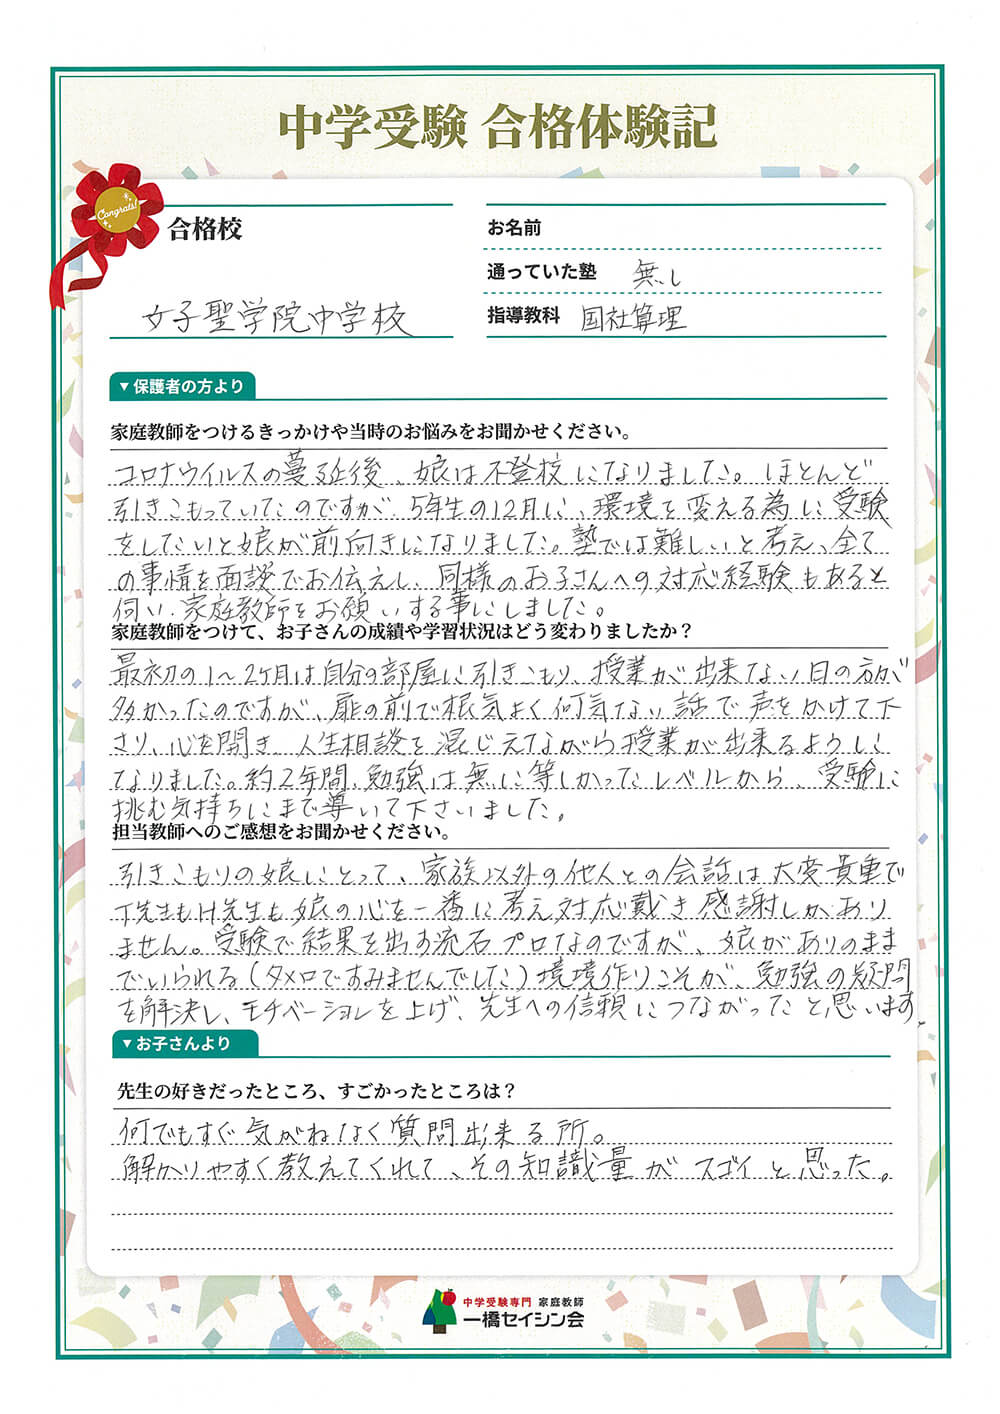 中学受験 合格体験記
Congrats!
合格校
女子聖学院中学校
お名前
通っていた塾 無し
指導教科 国社算理
▼保護者の方より
家庭教師をつけるきっかけや当時のお悩みをお聞かせください。
コロナウイルスの蔓延後、娘は不登校になりました。ほとんど
引きこもっていたのですが、5年生の12月に、環境を変える為に受験
をしたいと娘が前向きになりました。塾では難しいと考え、全て
の事情を面談でお伝えし、同様のお子さんへの対応経験もあると
伺い、家庭教師をお願いする事にしました。
家庭教師をつけて、お子さんの成績や学習状況はどう変わりましたか？
最初の1〜2ヶ月は自分の部屋に引きこもり、授業が出来ない日の方が
多かったのですが、扉の前で根気よく何気ない話で声をかけて下
さり、心を開き、人生相談を混じえながら授業が出来るように
なりました。約2年間、勉強は無に等しかったレベルから、受験に
挑む気持ちにまで導いて下さいました。
担当教師へのご感想をお聞かせください。
引きこもりの娘にとって、家族以外の他人との会話は大変貴重で
T先生もH先生も娘の心を一番に考え対応戴き感謝しかあり
ません。受験で結果を出す流石プロなのですが、娘がありのまま
でいられる(タメロですみませんでした)境境作りこそが、勉強の疑問
を解決し、モチベーションを上げ、先生への信頼につながったと思います。
▼お子さんより
先生の好きだったところ、すごかったところは？
何でもすぐ気がねなく質問出来る所。
解かりやすく教えてくれて、その知識量がスゴイと思った。
中学受験専門 家庭教師
一橋セイシン会